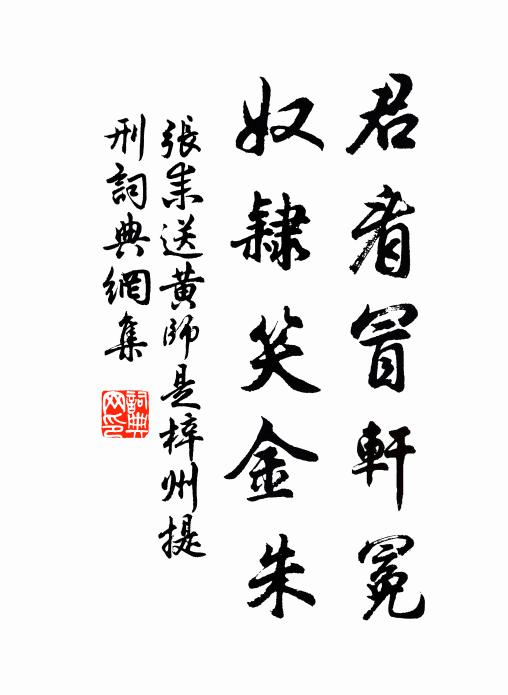 君看冒軒冕
奴隸笑金朱
張耒送黄師是梓州提
刑詞典網集
詞典网印